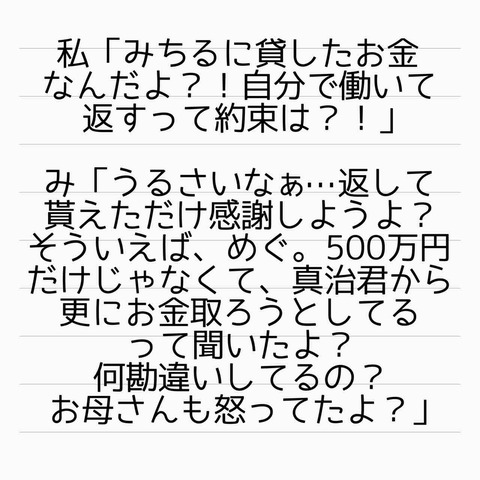 私「みちるに貸したお金
なんだよ？！自分で働いて
返すって約束は？！」
み「うるさいなぁ…返して
貰えただけ感謝しようよ？
そういえば、めぐ。500万円
だけじゃなくて、真治君から
更にお金取ろうとしてる
って聞いたよ？
何勘違いしてるの？
お母さんも怒ってたよ？」